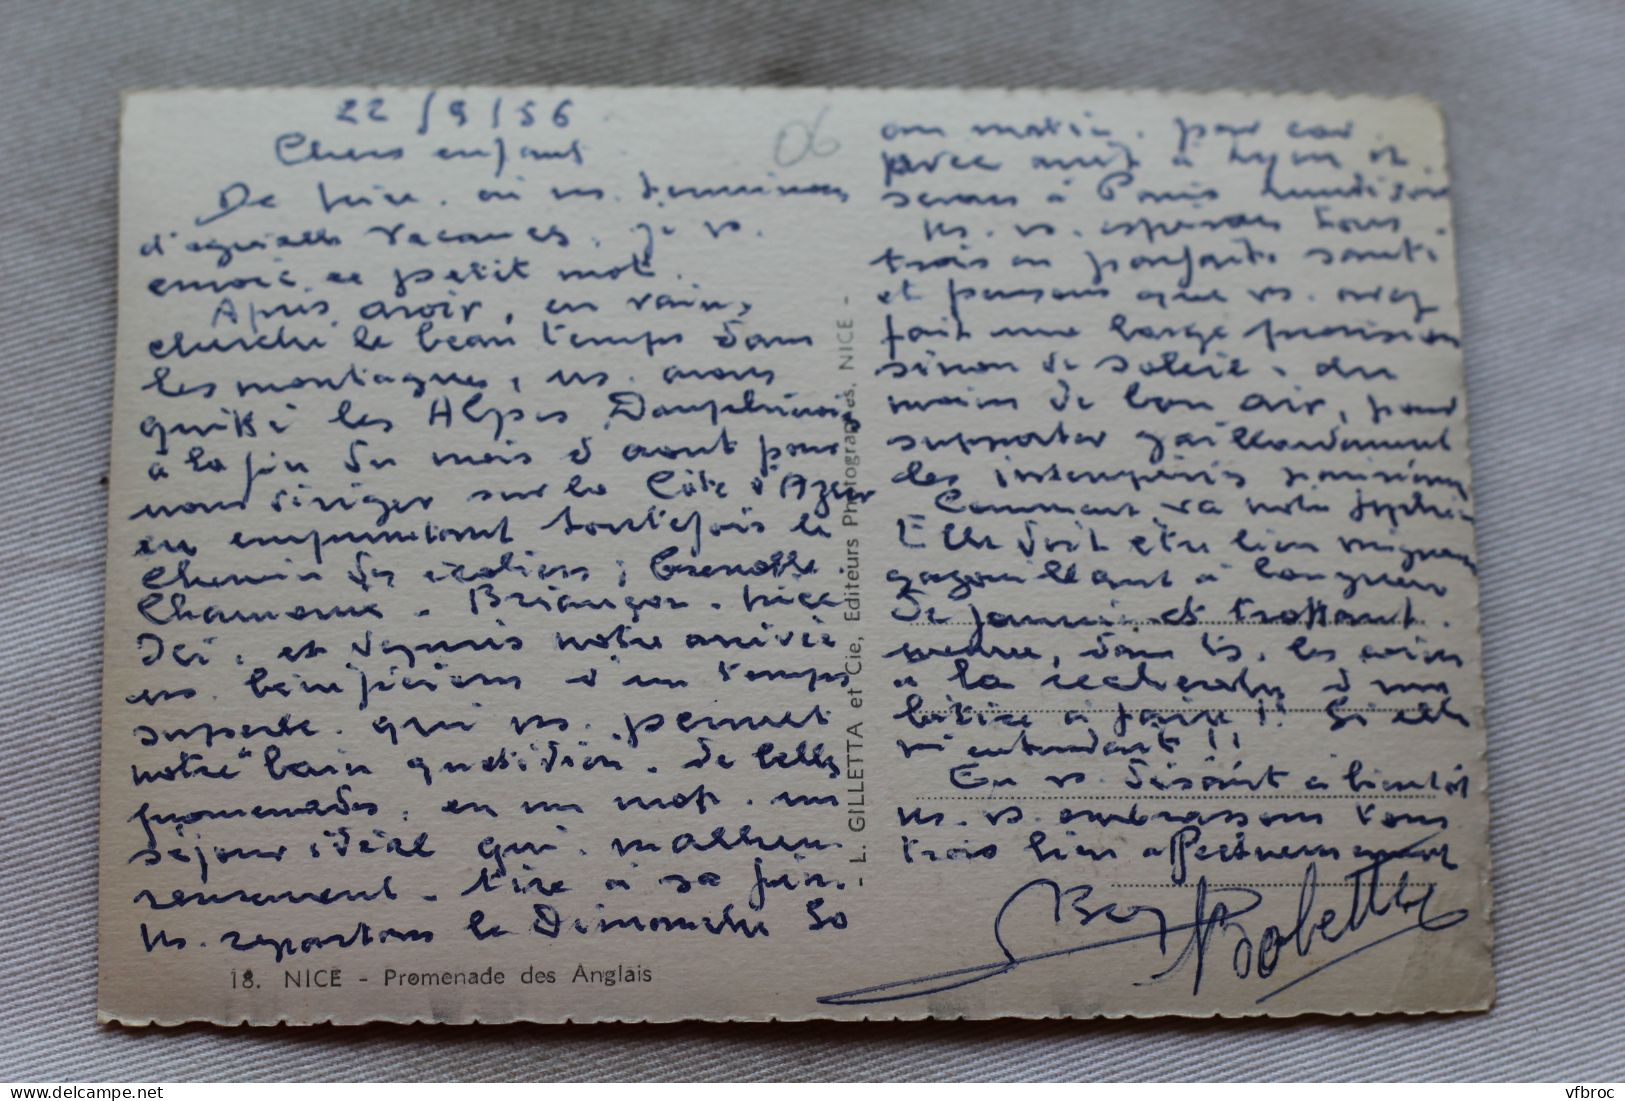 22/9/56
06
Chers enfants
De Nice, où ns. terminons
d'agréables vacances, je vs.
envoie ce petit mot.
Après avoir, en vain,
cherché le beau temps dans
les montagnes, ns. avons
quitté les Alpes Dauphinoises
à la fin du mois d'août pour
nous diriger sur la Côte d'Azur
en empruntant toutefois le
chemin des écoliers ; Grenoble.
Chamonix - Briançon - Nice
Ici, et depuis notre arrivée
ns. bénéficions d'un temps
superbe qui ns. permet
notre bain quotidien. de belles
promenades, en un mot, un
séjour idéal qui, malheu-
reusement, tire à sa fin.
Ns. repartons le Dimanche 30
au matin, par car,
avec arrêt à Lyon et
serons à Paris Lundi soir
Ns. vs. espérons tous
trois en parfaite santé
et pensons que vs. avez
fait une large provision
sinon de soleil, du
moins de bon air, pour
supporter gaillardement
les intempéries parisiennes
Comment va notre
Elle doit être bien mignonne
gazouillant à longueur
de journée et trottant
menue, dans ts. les coins
à la recherche d'une
bêtise à faire !! Si elle
m'entendait !!
En vs. disant à bientôt
ns. vs. embrassons tous
trois bien affectueusement
Bobette
18. NICE - Promenade des Anglais
- L. GILLETTA et Cie, Editeurs Photographes, NICE -
vfbroc